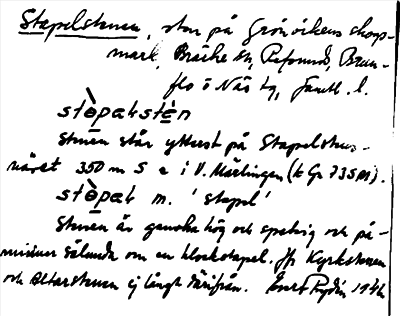 Stapelstenen, sten på Grönvikens skogs-
mark, Bräcke sn, Refsunds, Brun-
flo o Näs tg, Jämtl. l.
stὸpakstén
Stenen står ytterst på Stapelstens-
näset 350 m S e i V. Märlingen (k Gr 735 M).
stὸpak m. 'stapel'
Stenen är ganska hög och spetsig och på-
minner sålunda om en klockstapel. Jfr Kyrkstenen
och Altarstenen ej långt därifrån. Rydin